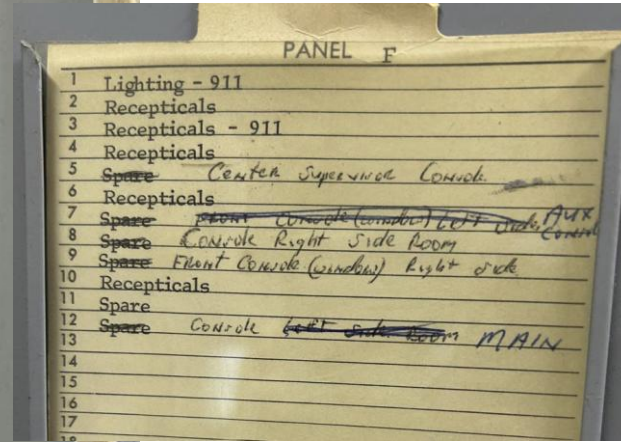 PANEL F
1 Lighting - 911
2 Recepticals
3 Recepticals - 911
4 Recepticals
5 Spare Center Supervisor Console
6 Recepticals
7 Spare Front Console (window) Left Side AUX Console
8 Spare Console Right Side Room
9 Spare Front Console (window) Right side
10 Recepticals
11 Spare
12 Spare Console Left Side Room MAIN
13
14
15
16
17
18